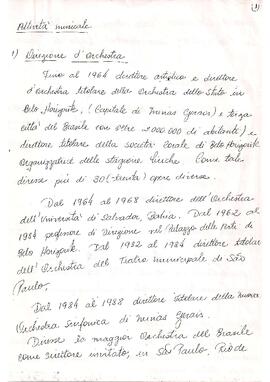 (1)
Attività musicale
1) Direzione d'orchestra
Fino al 1964 direttore artistico e direttore
d'orchestra titolare della Orchestra dello Stato in
Belo Horizonte, (Capitale di Minas Gerais) e terza
città del Brasile con oltre 2000.000 di abitanti) e
direttore titolare della società Corale di Belo Horizonte
Organizzatrice delle stagione liriche. Come tale
diresse più di 30 (trenta) opere diverse.
Dal 1964 al 1968 direttore dell'Orchestra
dell'Università di Salvador, Bahia. Dal 1962 al
1984 professore di Direzione nel Palazzo delle Arti di
Belo Horizonte. Dal 1982 al 1984 direttore titolare
dell'Orchestra del Teatro municipale di São
Paulo.
Dal 1984 al 1988 direttore titolare della nuova
Orchestra Sinfonica di Minas Gerais.
Diresse la maggior Orchestra del Brasile
come direttore invitato, in São Paulo, Rio de